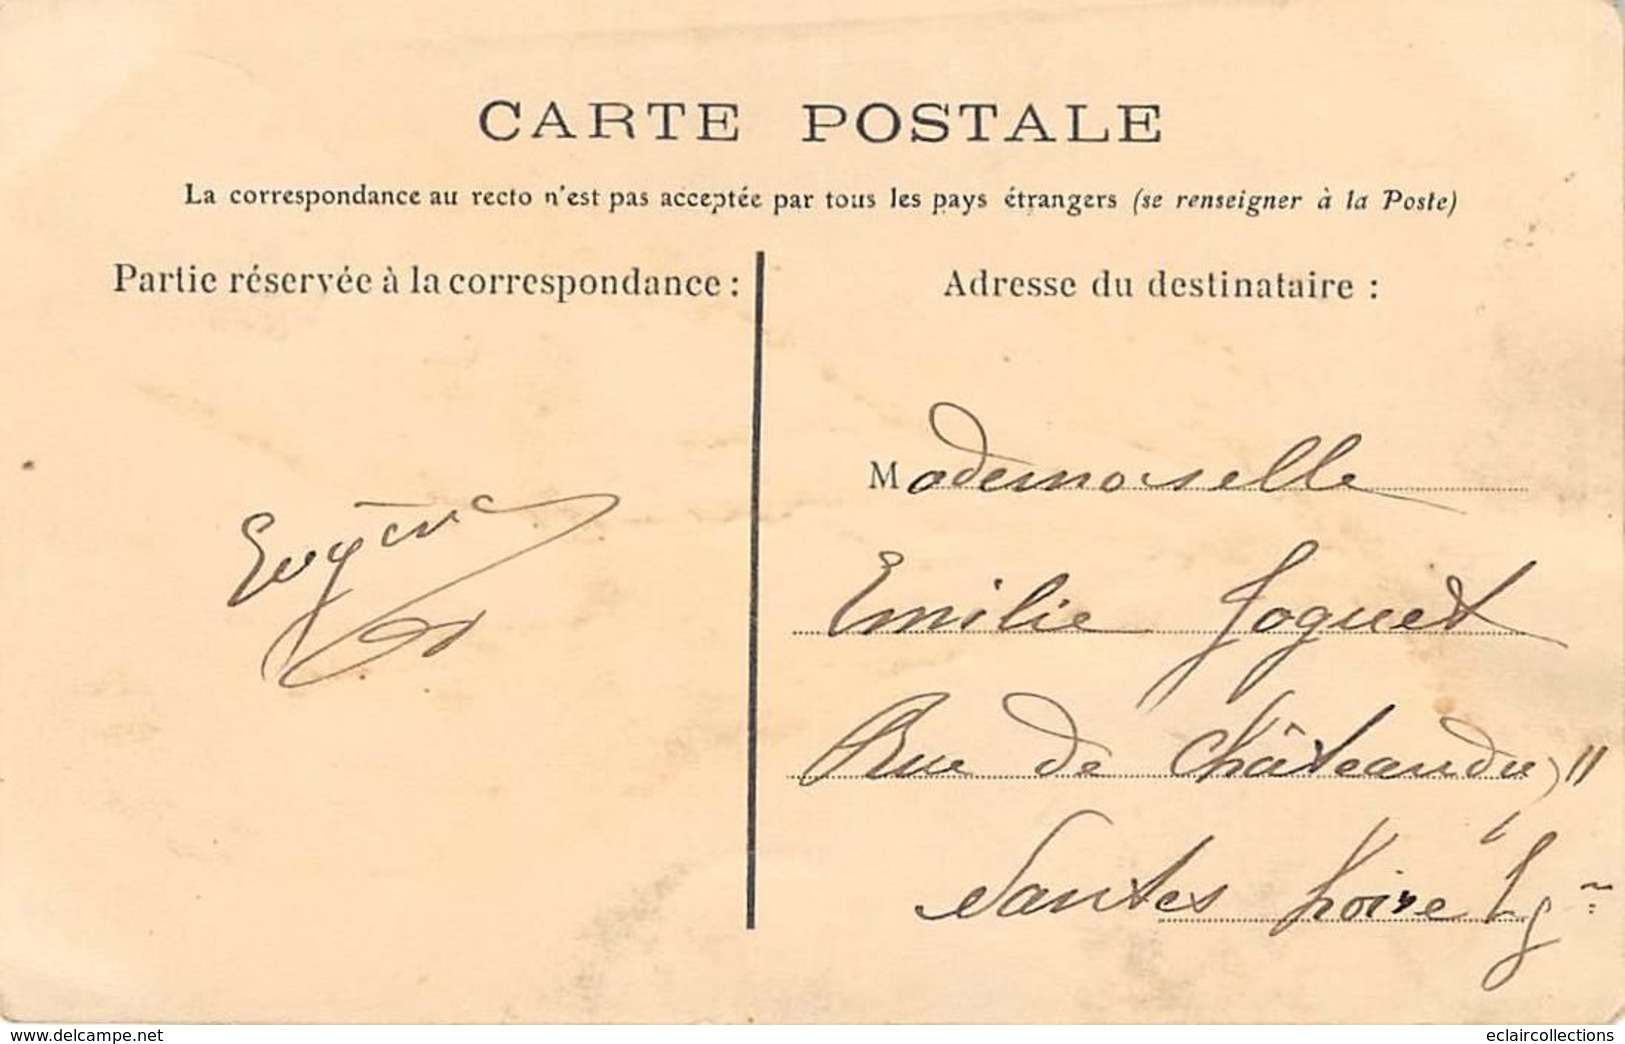 CARTE POSTALE
La correspondance au recto n'est pas acceptée par tous les pays étrangers (se renseigner à la Poste)
Partie réservée à la correspondance :
Eugène
Adresse du destinataire :
Mademoiselle
Emilie Joguet
Rue de Châteaudun
Nantes Loire
www.delcampe.net
eclaircollections